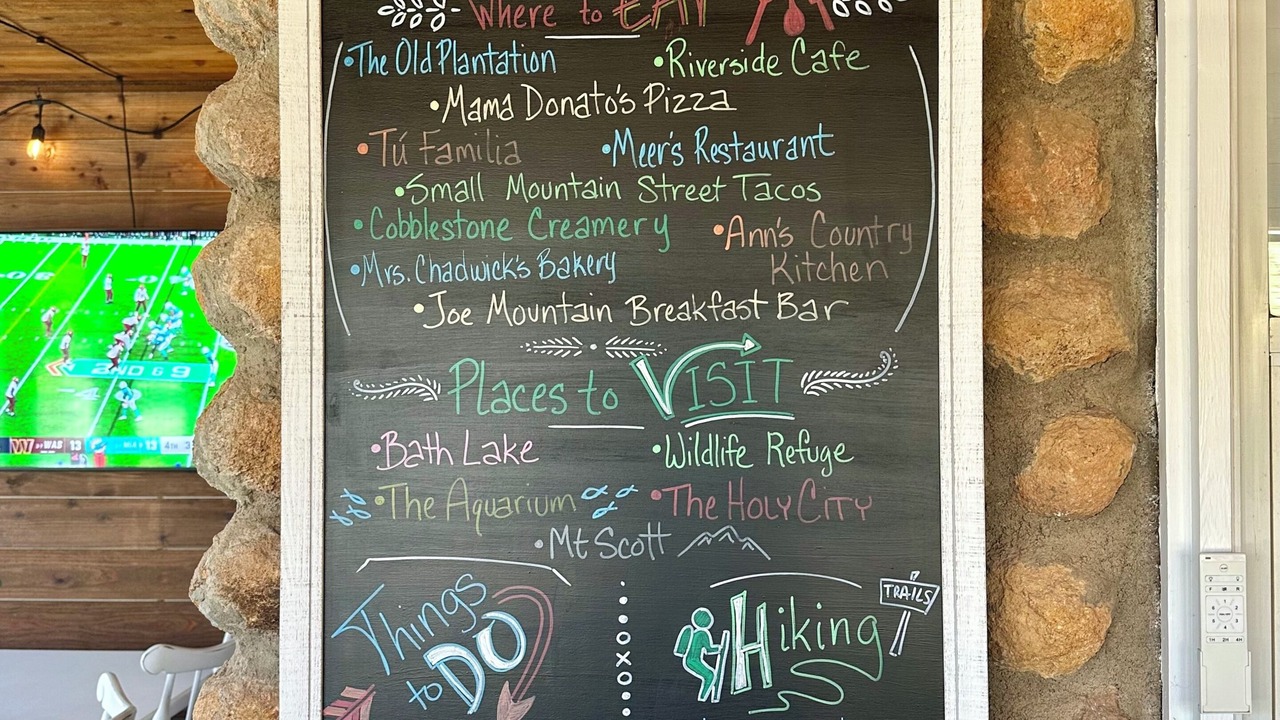 Where to EAT
•The Old Plantation •Riverside Cafe
•Mama Donato's Pizza
•Tú Familia •Meer's Restaurant
•Small Mountain Street Tacos
•Cobblestone Creamery •Ann's Country
Kitchen
•Mrs. Chadwick's Bakery
•Joe Mountain Breakfast Bar
Places to VISIT
•Bath Lake •Wildlife Refuge
•The Aquarium •The Holy City
•Mt Scott
Things
to DO
Hiking
TRAILS
2ND & 9
WAS 13 13 4TH